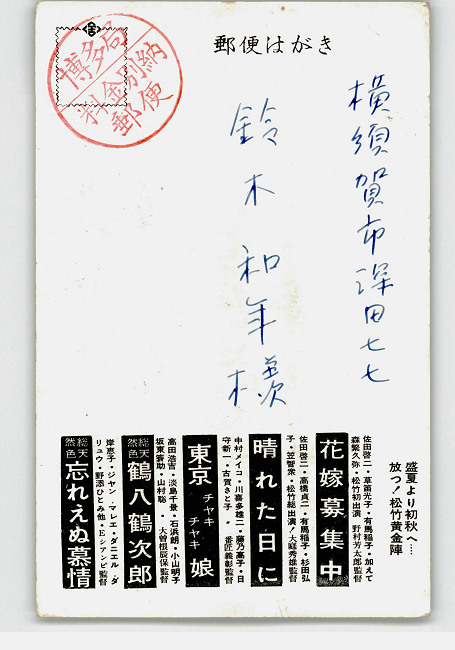 郵便はがき
博多局
料金別納
郵便
横須賀市深田七七
鈴木和年様
盛夏より初秋へ……
放つ!松竹黄金陣
佐田啓二・草笛光子・有馬稲子・加えて
森繁久弥・松竹初出演 野村芳太郎監督
花嫁募集中
佐田啓二・高橋貞二・有馬稲子・杉田弘
子・笠智衆・松竹総出演!大庭秀雄監督
晴れた日に
中村メイコ・川喜多雄二・藤乃高子・日
守新一・古賀さと子 〃 番匠義彰監督
東京チャキチャキ娘
高田浩吉・淡島千景・石浜朗・小山明子
坂東簑助・山村聡 大曽根辰保監督
総天然色 鶴八鶴次郎
岸恵子・ジャン・マレエ・ダニエル・ダ
リュウ・野添ひとみ他・E・シアンピ監督
総天然色 忘れえぬ慕情